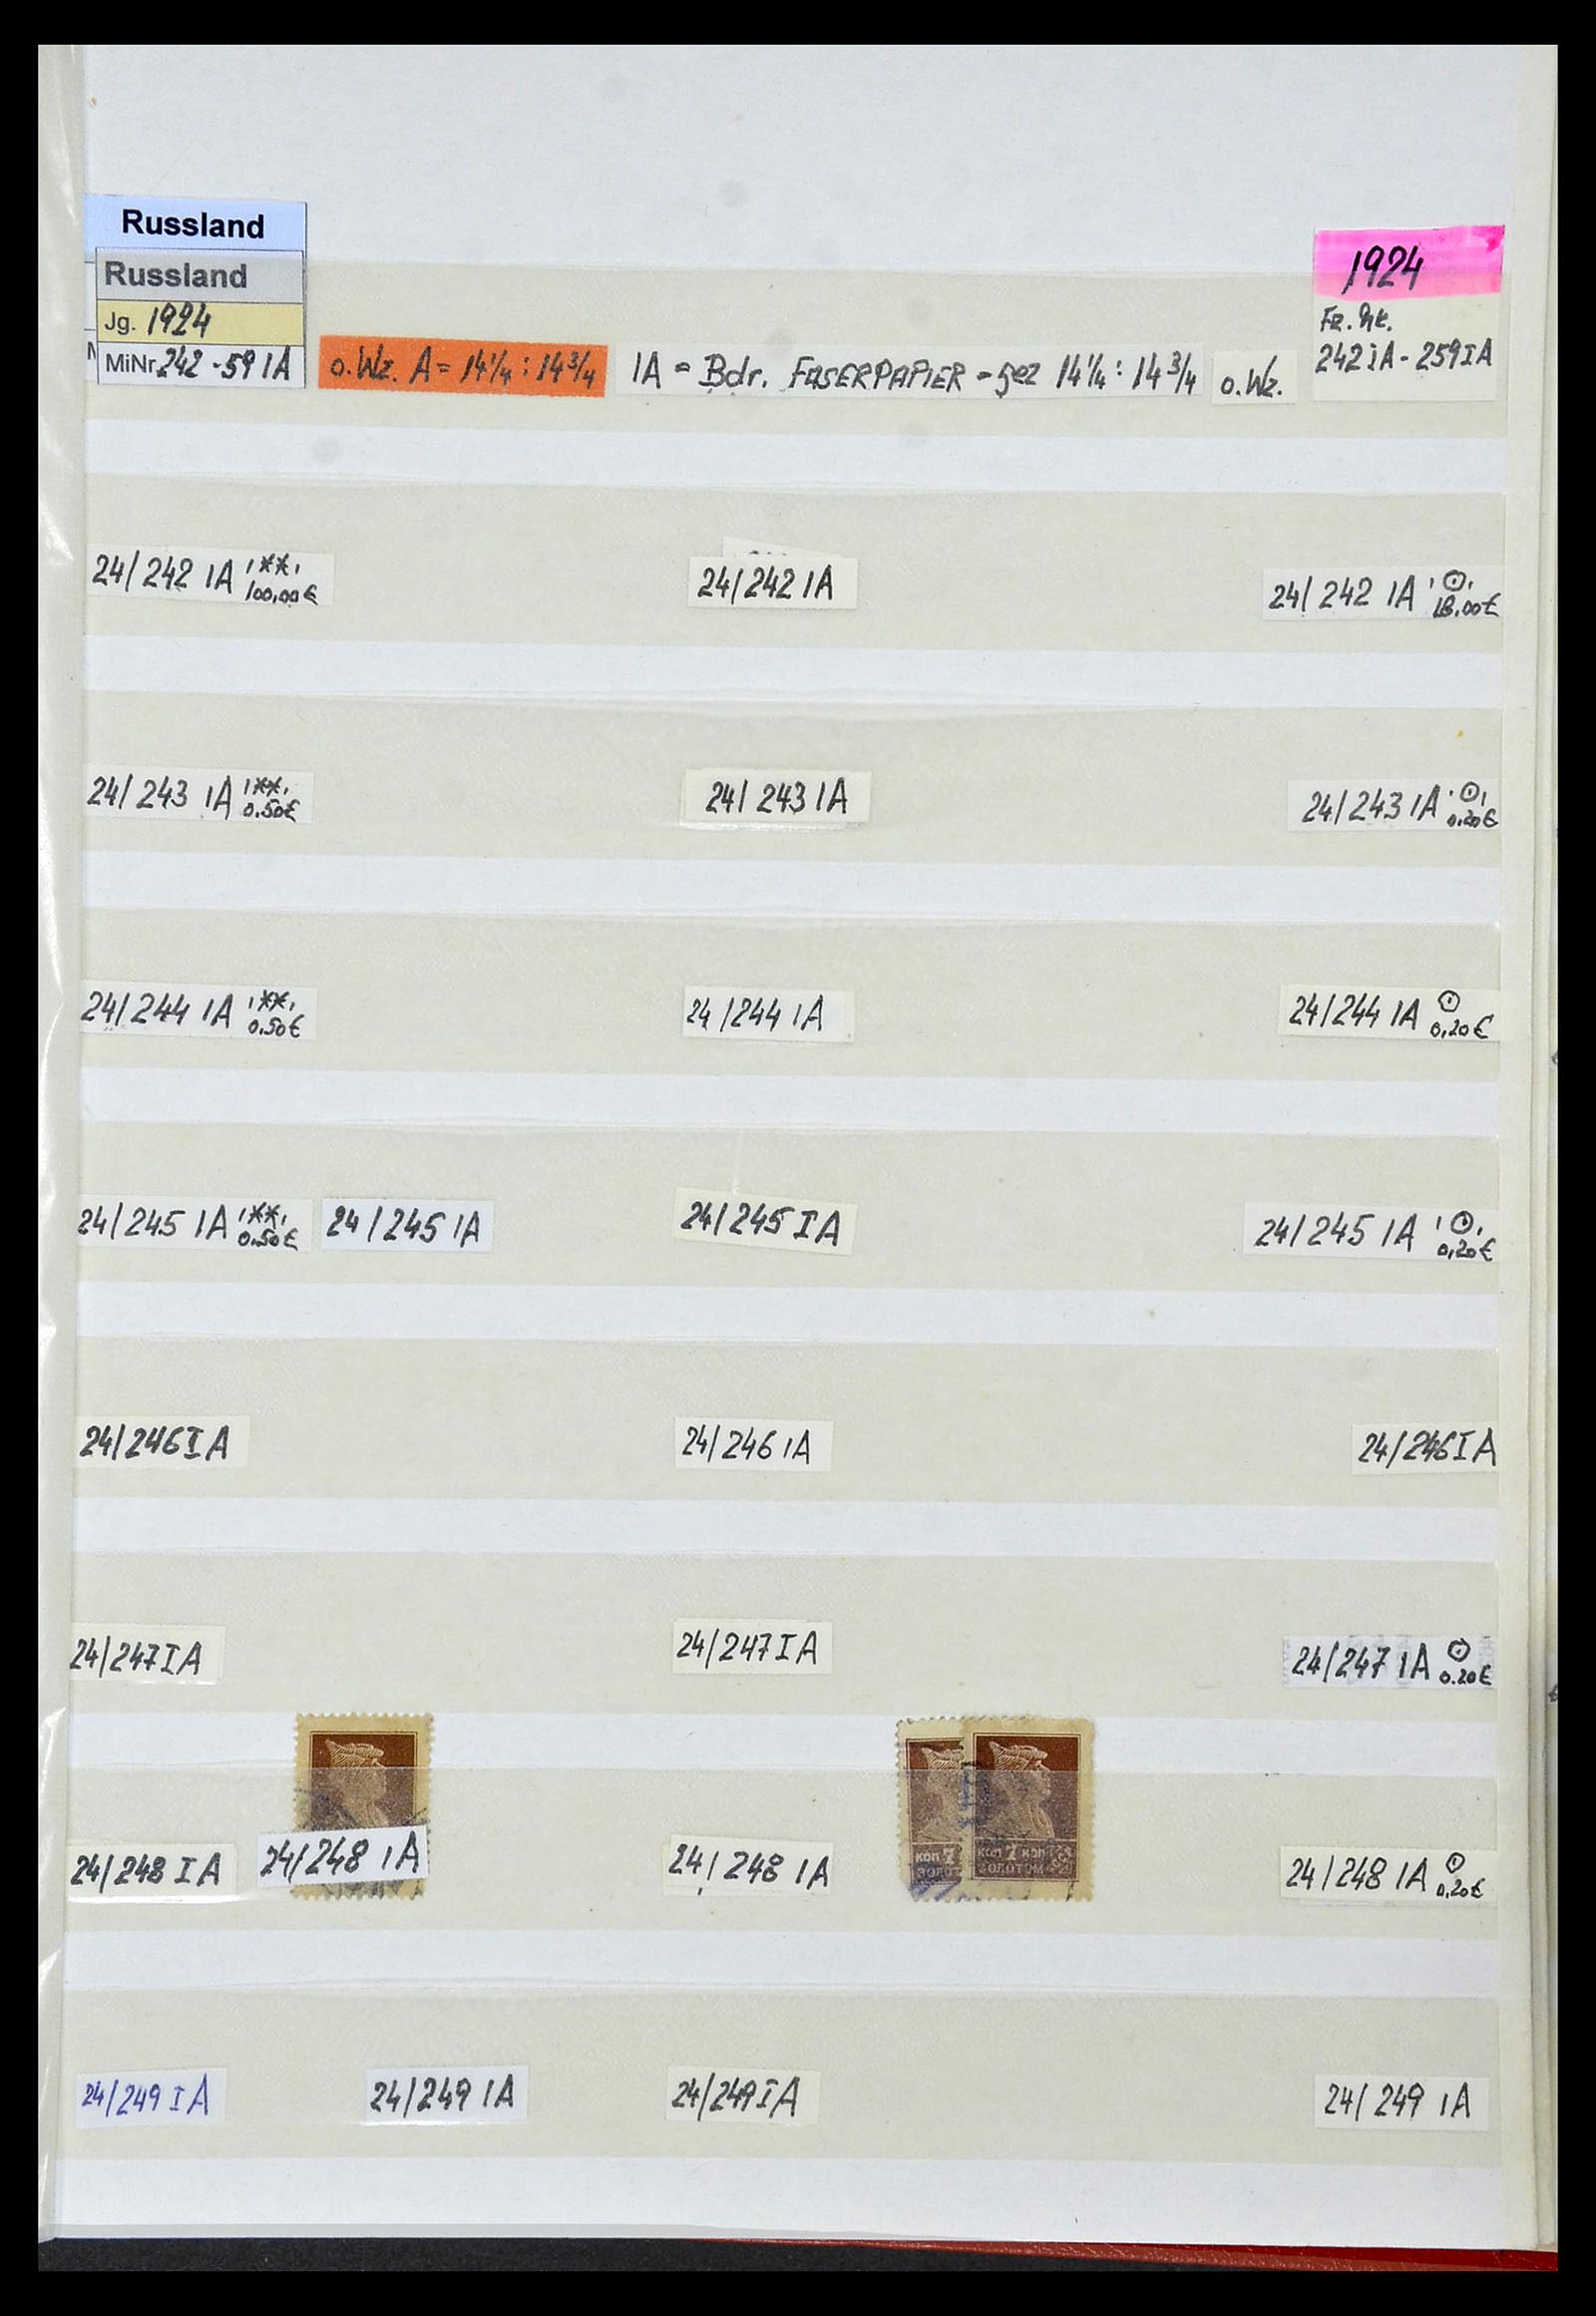 Russland
Russland
Jg. 1924
MiNr 242 - 59 IA
o. Wz. A = 14¼ : 14¾
IA = Bdr. FASERPAPIER - gez 14¼ : 14¾
o. Wz.
1924
242 IA - 259 IA
24/242 IA '**'
100,00 €
24/242 IA
24/242 IA '⊙'
18,00 €
24/243 IA '**'
0.50 €
24/243 IA
24/243 IA '⊙'
0,20 €
24/244 IA '**'
0.50 €
24/244 IA
24/244 IA ⊙
0,20 €
24/245 IA '**'
0.50 €
24/245 IA
24/245 IA
24/245 IA '⊙'
0,20 €
24/246 IA
24/246 IA
24/246 IA
24/247 IA
24/247 IA
24/247 IA ⊙
0.20 €
24/248 IA
24/248 IA
24/248 IA
коп 7
золот
коп 7 коп
золотом
24/248 IA ⊙
0,20 €
24/249 IA
24/249 IA
24/249 IA
24/249 IA